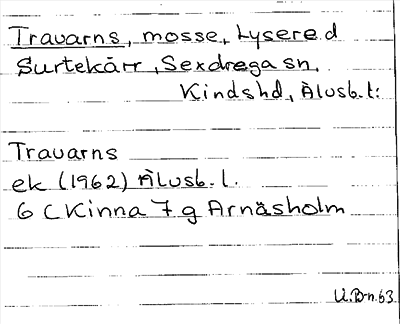 Travarns, mosse, Lysered
Surtekärr, Sexdrega sn,
Kindshd, Älvsb.l:
Travarns
ek (1962) Älvsb.l.
6 C Kinna 7 g Arnäsholm
U.Bn.63